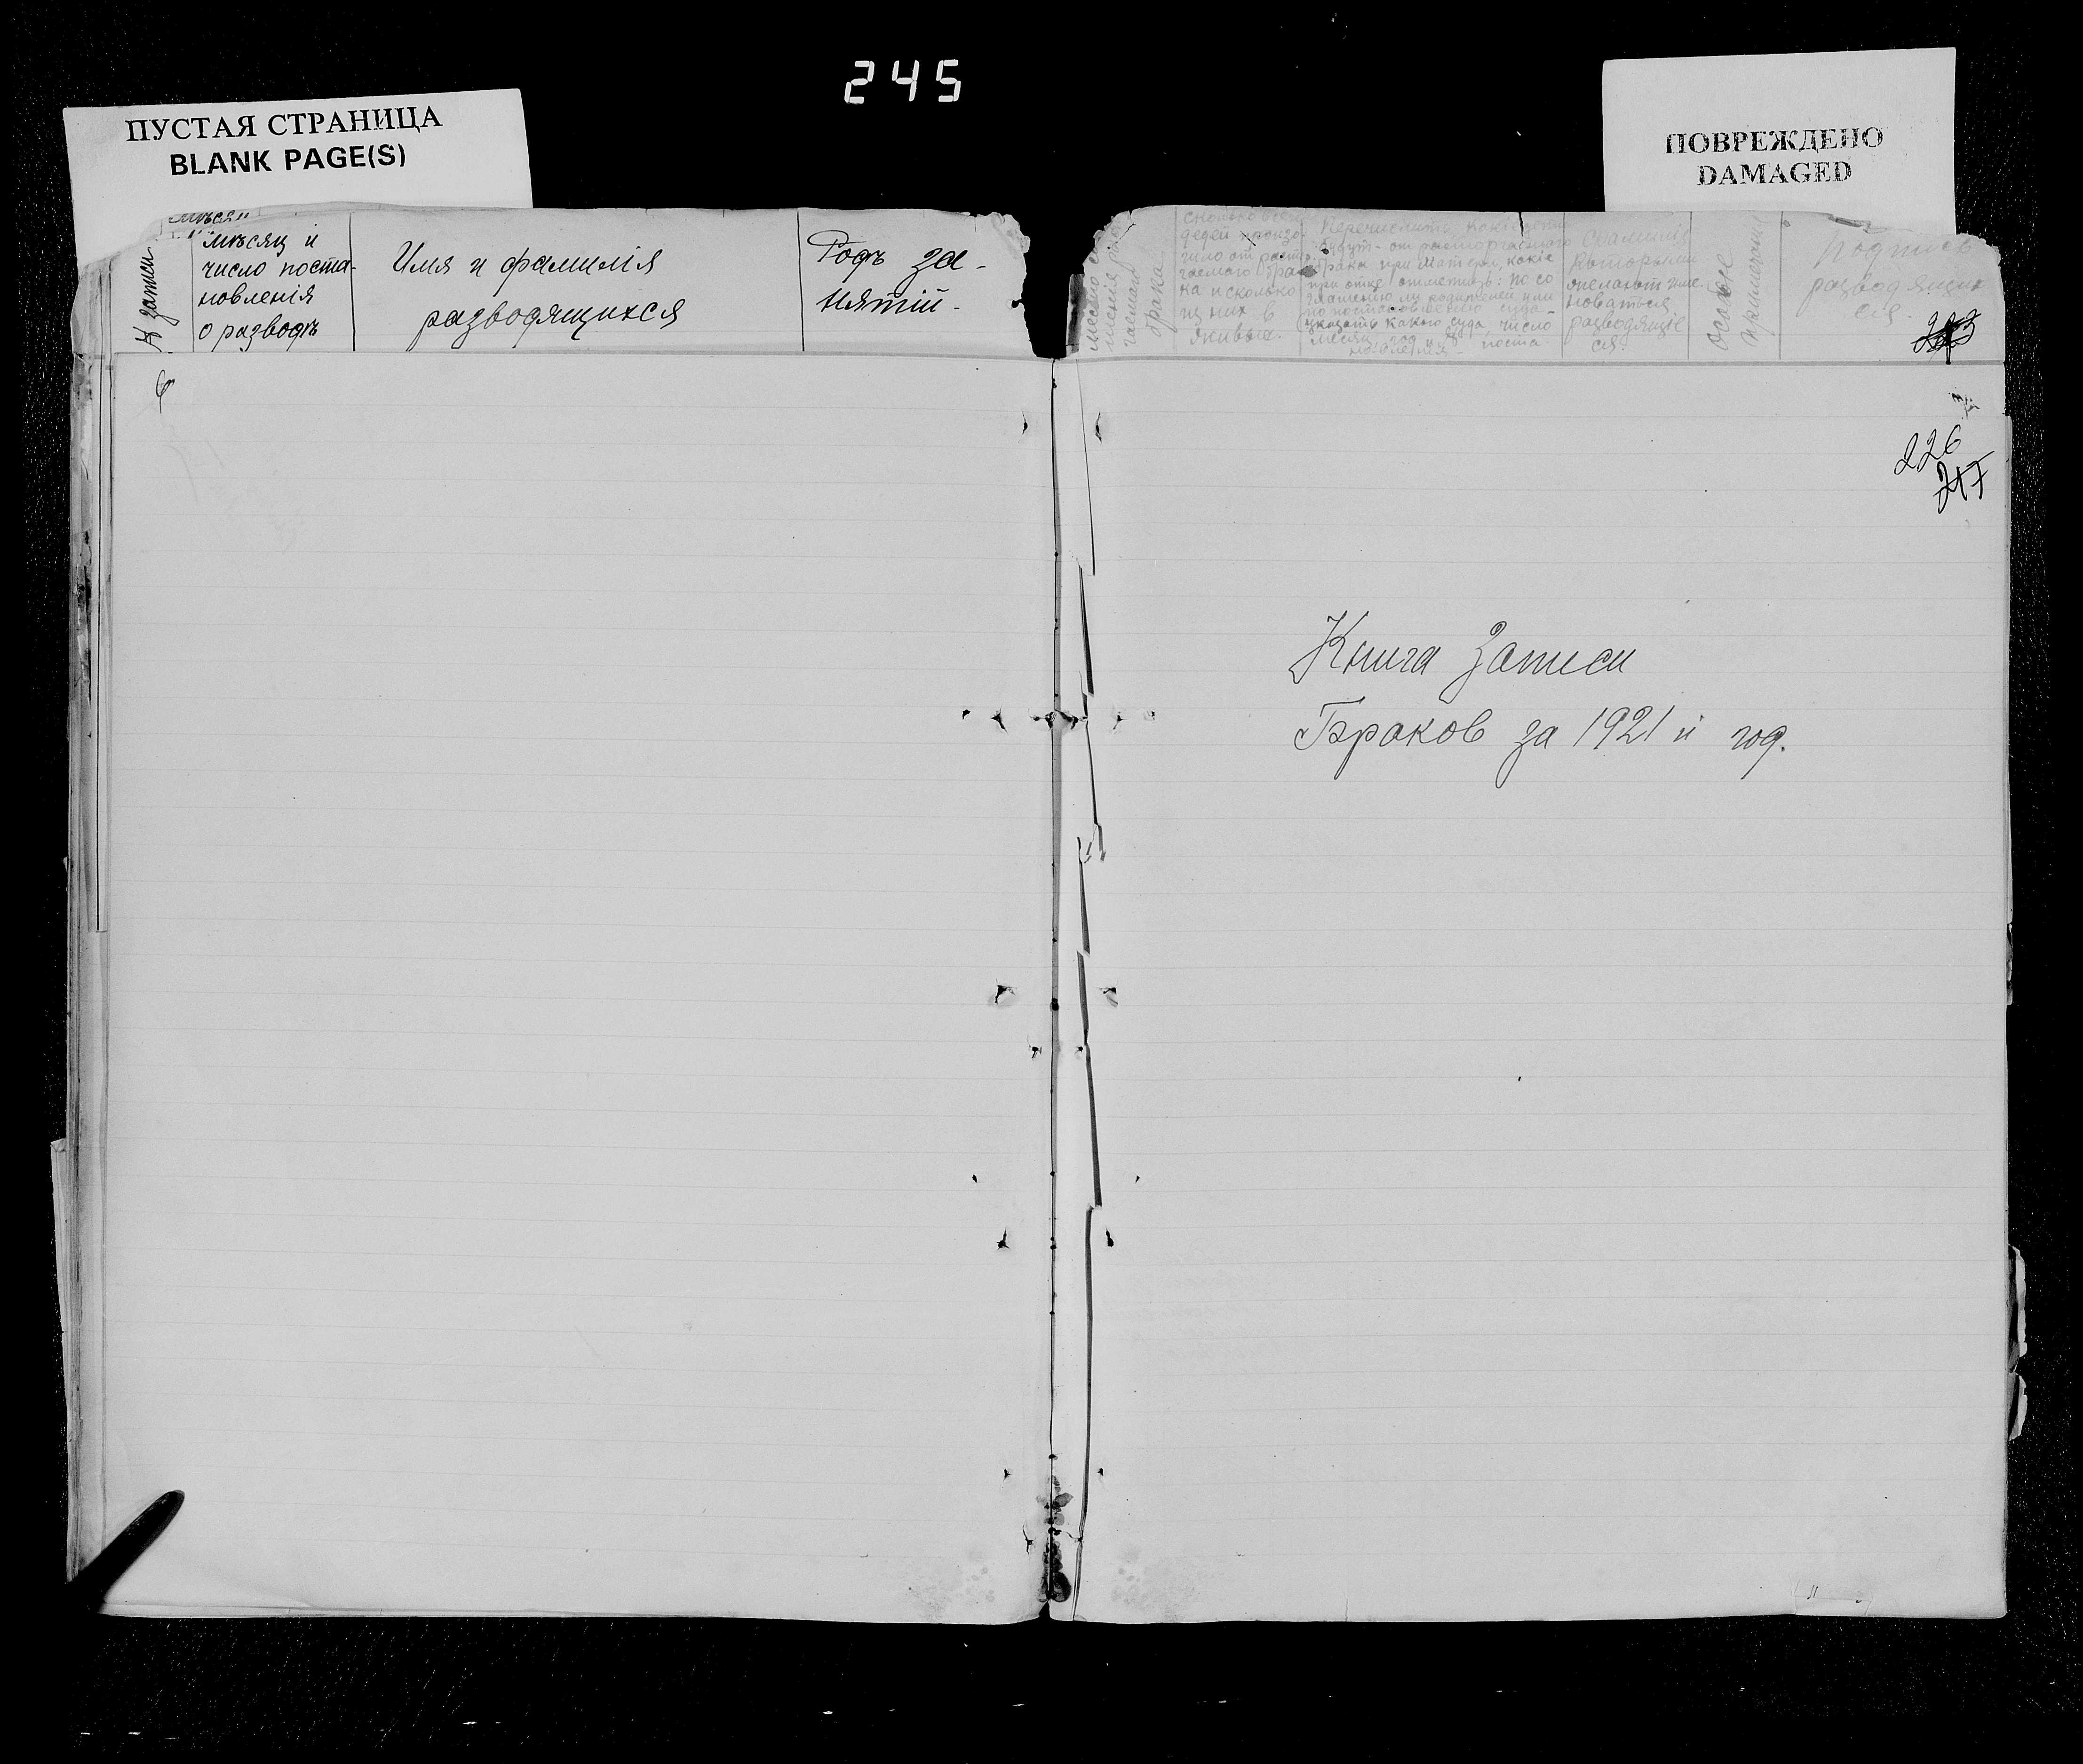 245
ПУСТАЯ СТРАНИЦА
BLANK PAGE(S)
ПОВРЕЖДЕНО
DAMAGED
N запис
мѣсяц и
число поста-
новленія
о разводѣ
Имя и фамилія
разводящихся
Родъ за-
нятій-
брака
сколько всего
детей произо-
на и сколько
из них в
живые.
Перечислить, какіе
брака при Матери, какіе
при отце отметить: по со
глашению ли родителей или
по постановлению суда-
указать какого суда, число
месяц, год и № поста-
новления-
которыми
желают име-
новаться
разводящіе
ся.
Особые
примечания
Подпись
разводящих
ся.
6
226
217
Книга Записи
Браков за 1921 й год.